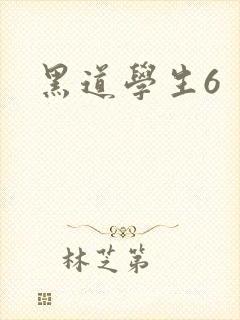 黑道學生6
林芝第